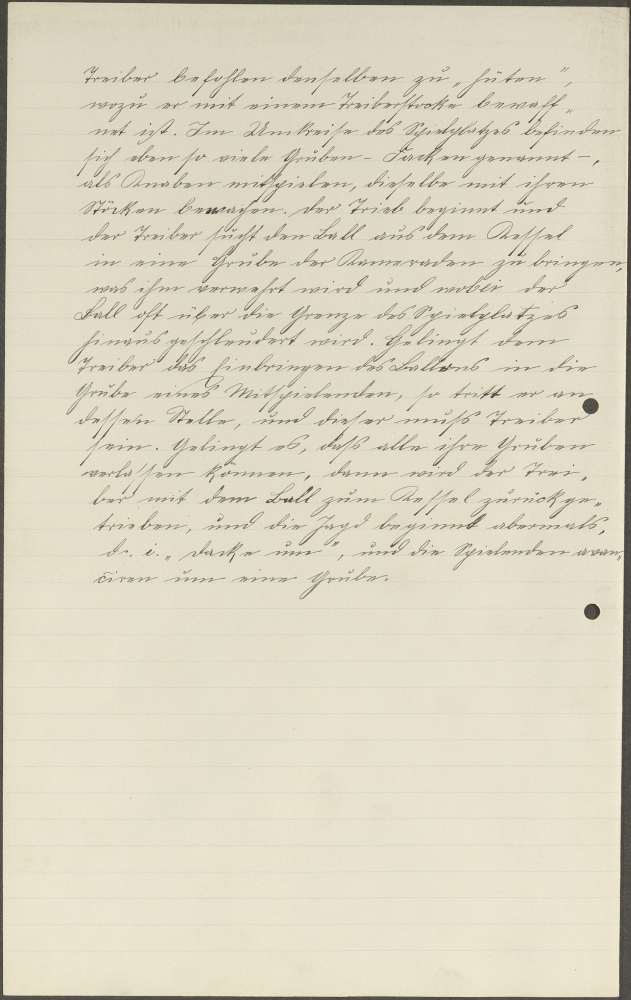 Treiber befohlen denselben zu „hüten",
wozu er mit einem Treiberstocke bewaff„
net ist. Im Umkreise des Spielplatzes befinden
sich eben so viele Gruben - Sacken genannt -,
als Knaben mitspielen, dieselbe mit ihren
Stöcken bewachen. Der Trieb beginnt und
der Treiber sucht den Ball aus dem Kessel
in eine Grube der Kameraden zu bringen,
was ihm verwehrt wird und wobei der
Ball oft über die Grenze des Spielplatzes
hinausgeschleudert wird. Gelingt dem
Treiber das Einbringen des Ballens in die
Grube eines Mitspielenden, so tritt er an
dessen Stelle, und dieser muß Treiber
sein. Gelingt es, daß alle ihre Gruben
verlassen können, dann wird der Trei„
ber mit dem Ball zum Kessel zurückge„
trieben, und die Jagd beginnt abermals,
d. i. „Dacke um", und die Spielenden avan„
ciren um eine Grube.